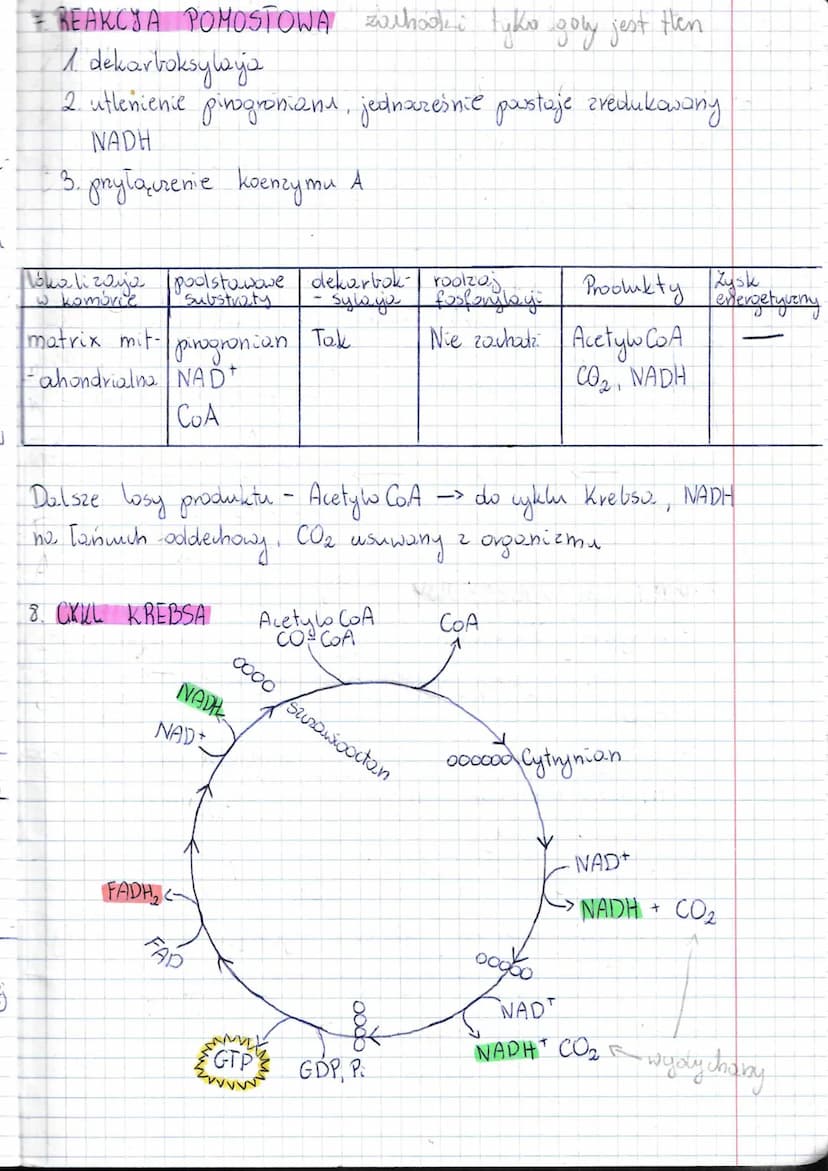 7. REAKCJA POMOSTOWA zachodzi tylko gdy jest tlen
1. dekarboksylacja
2. utlenienie pirogronianu, jednocześnie powstaje zredukowany
NADH
3. przyłączenie koenzymu A
lokalizacja w komórce | podstawowe substraty | dekarbok- -sylacja | rodzaj fosforylacji | Produkty | Zysk energetyczny
matrix mit- | pirogronian | Tak | Nie zachodzi | AcetyloCoA | —
-ochondrialna | NAD+ | CO2, NADH
CoA
Dalsze losy produktu - AcetyloCoA -> do cyklu Krebsa, NADH
na łańcuch oddechowy, CO2 usuwany z organizmu
8. CYKL KREBSA
AcetyloCoA
CoA
NADH
NAD+
szczawiooctan
Cytrynian
NAD+
NADH + CO2
FADH2
FAD
NAD+
NADH + CO2
wydychany
GTP
GDP, Pi